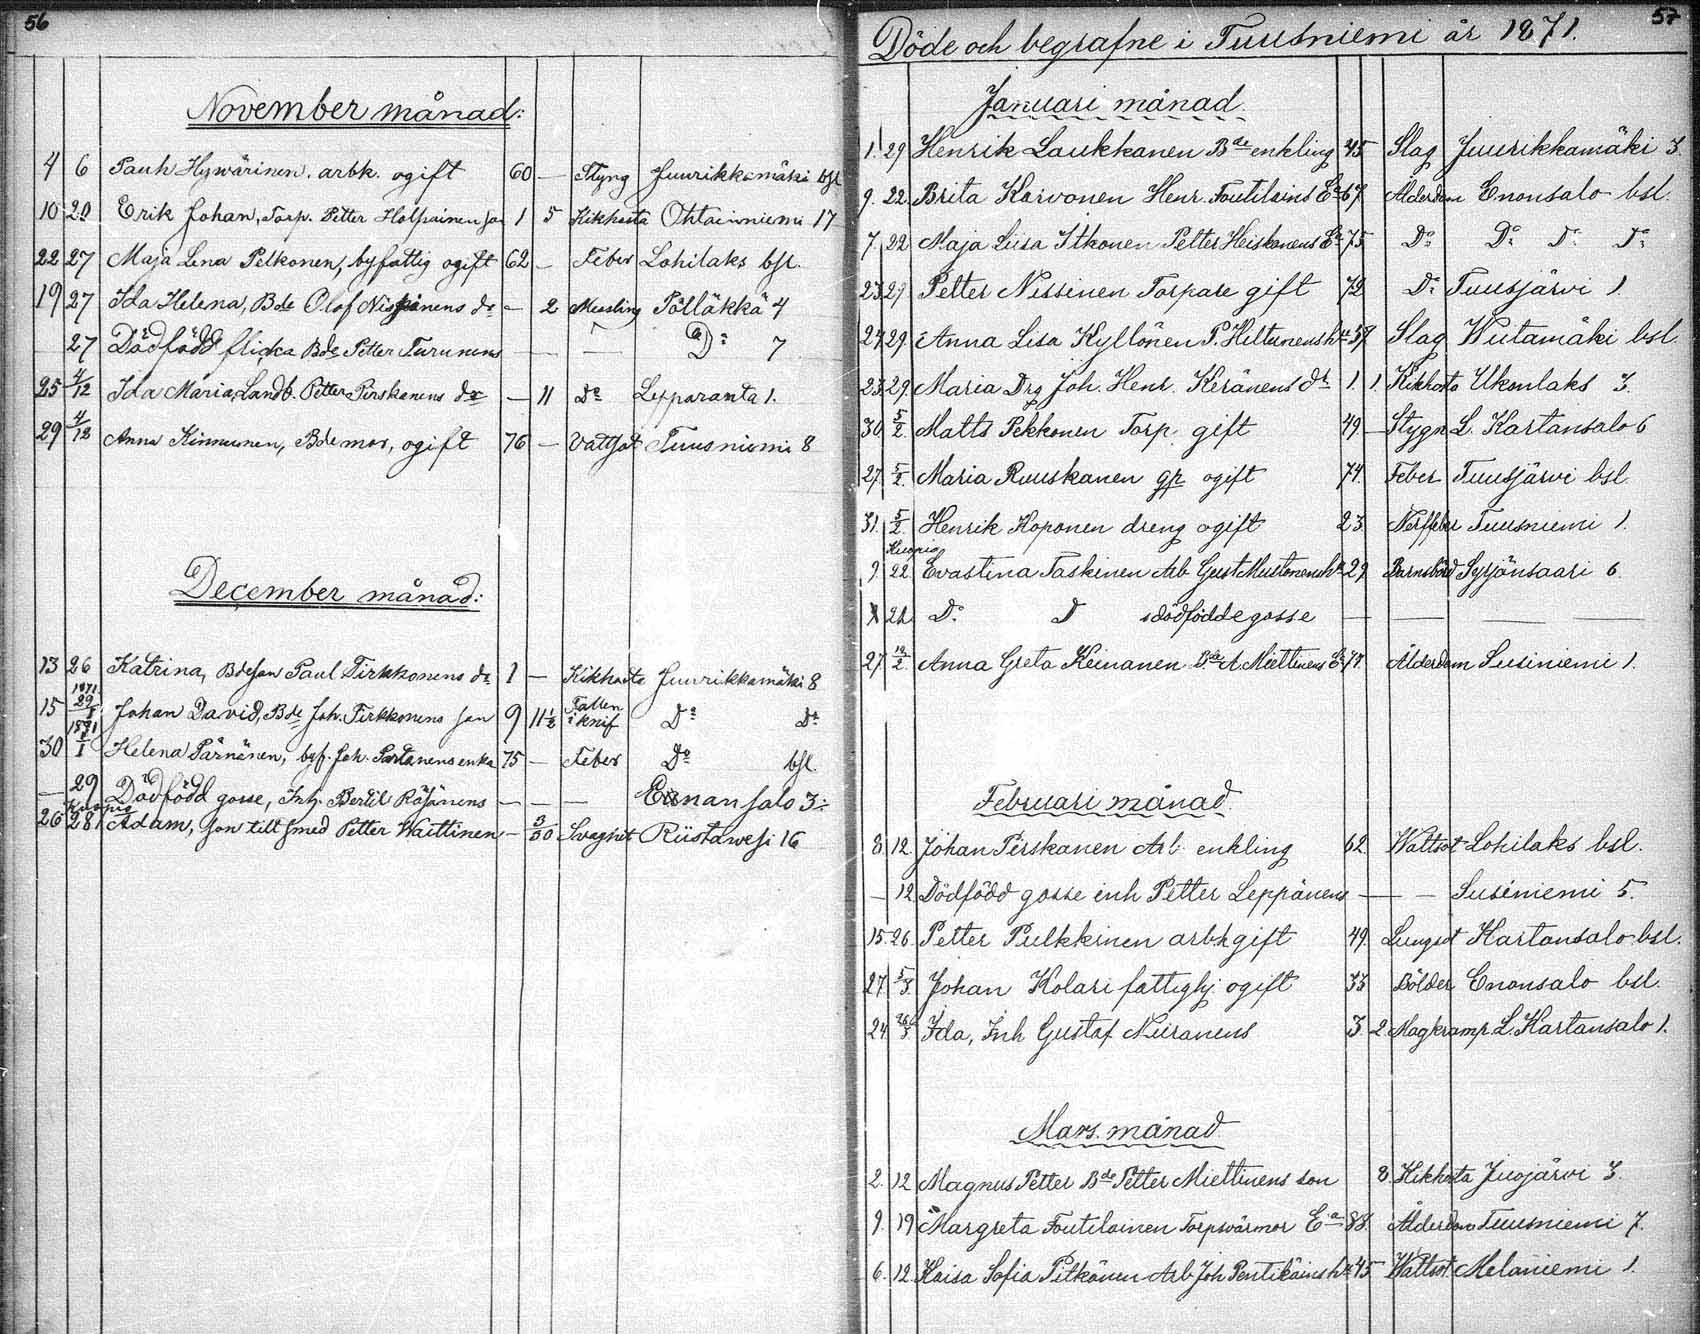 56
November månad:
4 6 Paul Hywärinen. arbk. ogift 60 — Styng Juurikkamäki bsl
10 20 Erik Johan, Torp. Petter Holpainen son 1 5 Kikhosta Ohtainniemi 17
22 27 Maja Lena Pelkonen, byfattig ogift 62 — Feber Lohilaks bsl.
19 27 Ida Helena, Bde Olof Nissinens dr — 2 Messling Pölläkkä 4
27 Dödfödd flicka Bde Petter Turunens — — Do 7
25 4/12 Ida Maria, Landb. Petter Pirskanens dr — 11 Do Lepparanta 1.
29 4/12 Anna Kinnunen, Bdemor, ogift 76 — Vattsot Tuusniemi 8
December månad:
13 26 Katrina, Bdeson Paul Tirkkonens dr 1 — Kikhosta Juurikkamäki 8
15 1871 29/1 Johan David, Bde Joh. Tirkkonens son 9 11 1/2 Fallen i knif Do Do
30 1871 1/1 Helena Pärnänen, byf. Joh. Partanens enka 75 — Feber Do bsl.
— 29 Dödfödd gosse, Inh. Bertil Räsänens — — — Enonsalo 3
26 Kuopio 28 Adam, son till smed Petter Waittinen — 3/30 Svaghet Riistawesi 16
57
Döde och begrafne i Tuusniemi år 1871.
Januari månad.
1. 29 Henrik Laukkanen Bde enkling 45 Slag Juurikkamäki 3.
9. 22 Brita Karvonen Henr. Toutilains Ea 67. Ålderdom Enonsalo bsl.
7. 22 Maja Liisa Itkonen Petter Heiskanens Ea 75 Do Do Do Do
23 29. Petter Nissinen Torpare gift 72 Do Tuusjärvi 1.
27 29. Anna Lisa Kyllönen P. Hiltunens hu 57 Slag Wiitamäki bsl.
23. 29. Maria Drg Joh. Henr. Keränens dr 1. 1. Kikhosta Ukonlaks 3.
30. 5/2. Matts Pekkonen Torp. gift 49 — Stygn L. Kartansalo 6
27. 5/2. Maria Ruuskanen gp ogift 74. Feber Tuusjärvi bsl.
31. 5/2. Henrik Koponen dreng ogift 23. Nerffeber Tuusniemi 1.
Kuopio
9. 22. Evastina Taskinen Arb Gust Mustonens hu 29. Barnsbörd Syrjänsaari 6.
22. Do D dödföddegosse — — — —
27. 12/2. Anna Greta Keinanen Bde A Miettinens Ea 77. Ålderdom Susiniemi 1.
Februari månad.
8. 12. Johan Pirskanen Arb. enkling 62. Wattsot Lohilaks bsl.
— 12. Dödfödd gosse inh Petter Leppänens — — Susiniemi 5.
15. 26. Petter Pulkkinen arbk gift 49. Lungsot Kartansalo bsl.
27. 5/3. Johan Kolari fattighj. ogift 33 Bölder Enonsalo bsl.
24. 26/3. Ida, Inh Gustaf Niiranens 3. 2. Magkramp L. Kartansalo 1.
Mars. månad.
2. 12 Magnus Petter Bde Petter Miettinens son 8. Kikhosta Juojärvi 3.
9. 19 Margreta Toutilainen Torpsvärmor Ea 83. Ålderdom Tuusniemi 7.
6. 12. Kaisa Sofia Pitkänen Arb Joh Pentikäins hu 45 Wattsot Melaniemi 1.